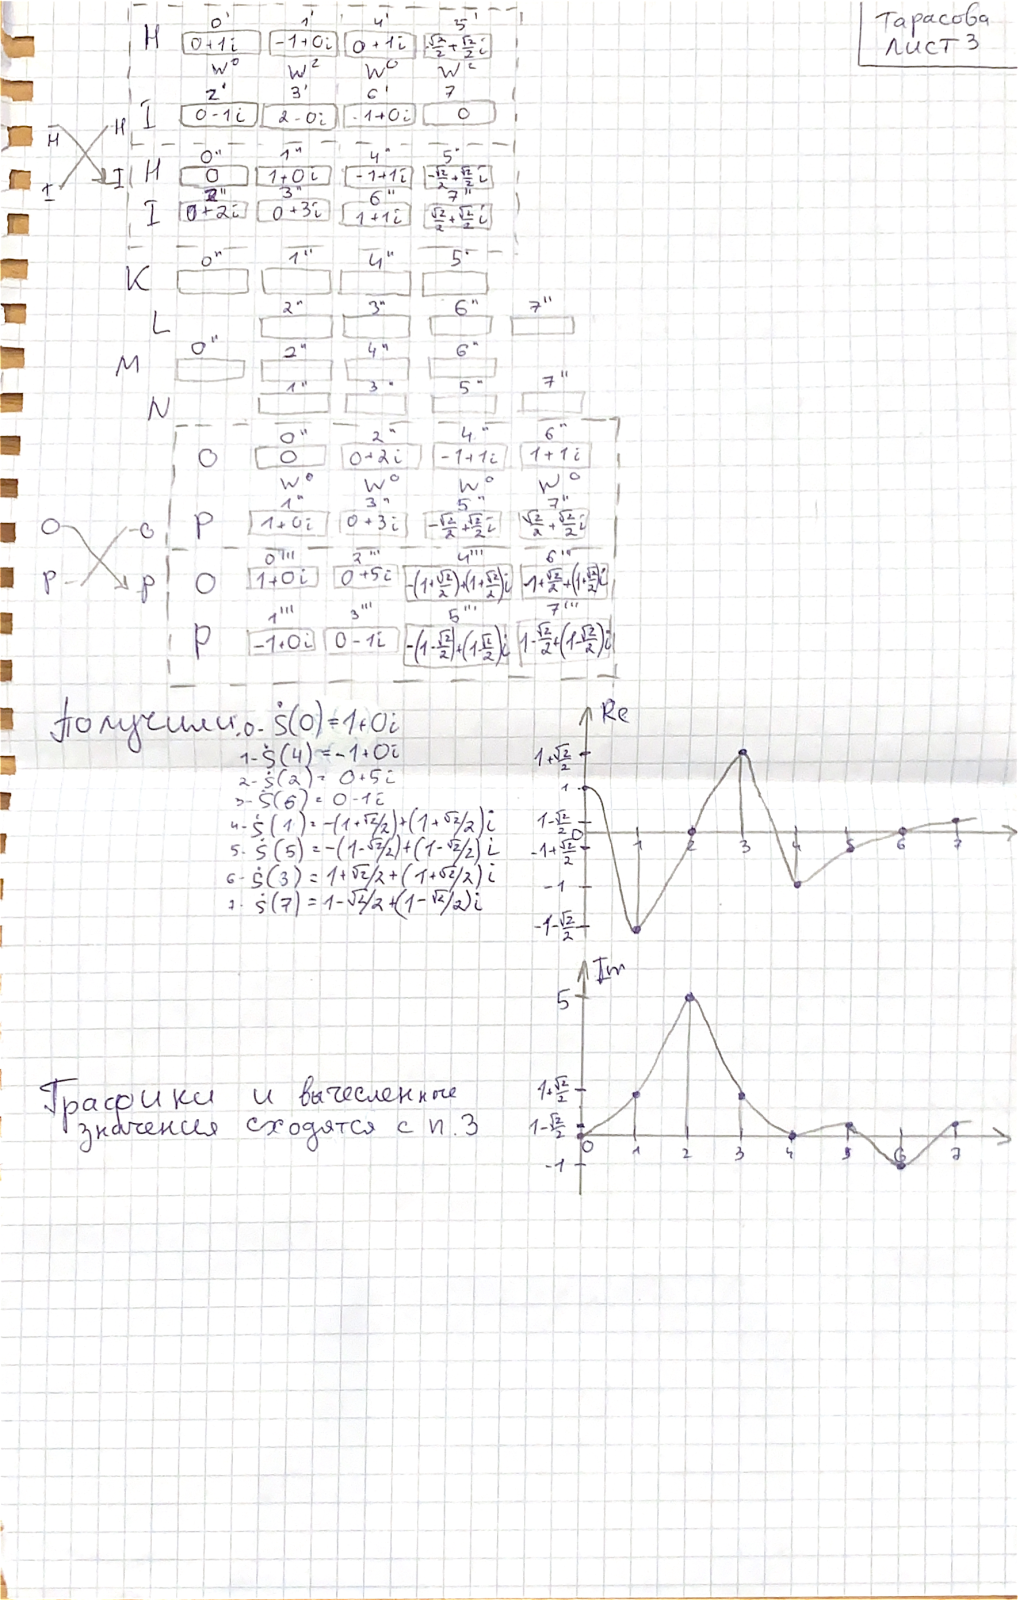 Тарасова
Лист 3
0' 1' 4' 5'
H 0+1i -1+0i 0+1i √2/2+√2/2i
W⁰ W² W⁰ W²
2' 3' 6' 7
I 0-1i 2-0i -1+0i 0
H H
I I
0" 1" 4" 5"
H 0 1+0i -1+1i -√2/2+√2/2i
2" 3" 6" 7"
I 0+2i 0+3i 1+1i √2/2+√2/2i
0" 1" 4" 5"
K
2" 3" 6" 7"
L
0" 2" 4" 6"
M
1" 3" 5" 7"
N
0" 2" 4" 6"
O 0 0+2i -1+1i 1+1i
W⁰ W⁰ W⁰ W⁰
1" 3" 5" 7"
P 1+0i 0+3i -√2/2+√2/2i √2/2+√2/2i
O O
P P
0''' 2''' 4''' 6'''
O 1+0i 0+5i -(1+√2/2)+(1+√2/2)i 1+√2/2+(1+√2/2)i
1''' 3''' 5''' 7'''
P -1+0i 0-1i -(1-√2/2)+(1-√2/2)i 1-√2/2+(1-√2/2)i
Получили: 0- Ṡ(0)=1+0i
1- Ṡ(4)=-1+0i
2- Ṡ(2)= 0+5i
3- Ṡ(6)= 0-1i
4- Ṡ(1)=-(1+√2/2)+(1+√2/2)i
5- Ṡ(5)=-(1-√2/2)+(1-√2/2)i
6- Ṡ(3)=1+√2/2+(1+√2/2)i
7- Ṡ(7)=1-√2/2+(1-√2/2)i
Re
1+√2/2
1
1-√2/2
0 1 2 3 4 5 6 7
-1+√2/2
-1
-1-√2/2
Im
5
1+√2/2
1-√2/2
0 1 2 3 4 5 6 7
-1
Графики и вычесленные
значения сходятся с п.3